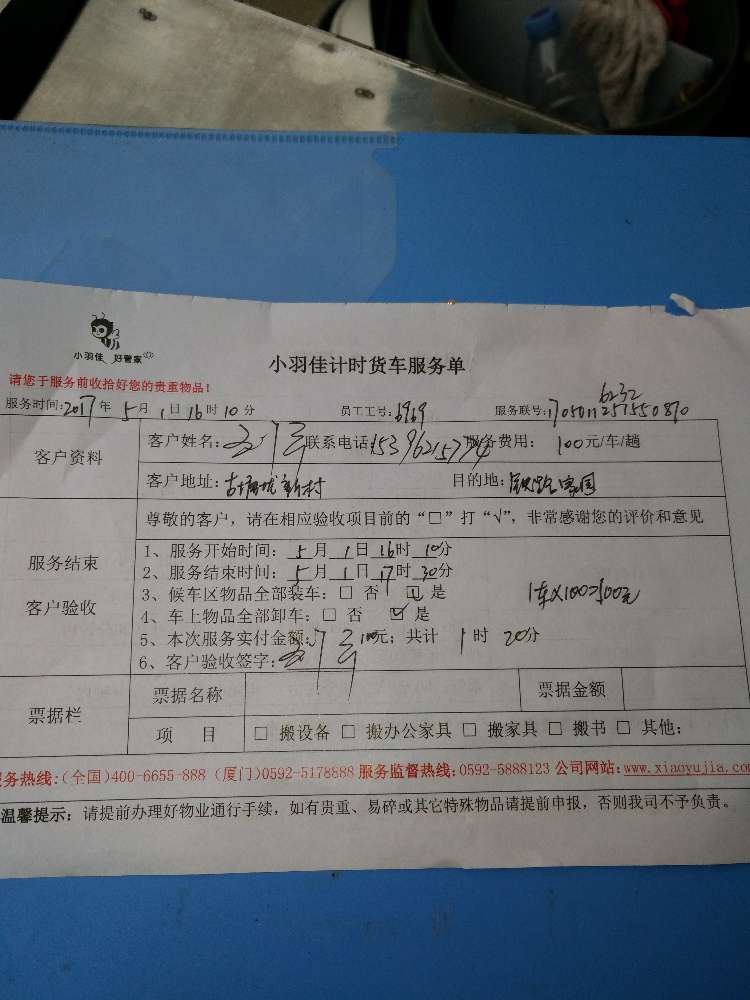 小羽佳 好管家
小羽佳计时货车服务单
请您于服务前收拾好您的贵重物品！
6232
服务时间:2017年5月1日16时10分 员工工号:6969 服务联号:1705011257550870
客户资料
客户姓名: 联系电话:1539621579 服务费用: 100元/车/趟
客户地址: 新村 目的地:铁路家园
尊敬的客户，请在相应验收项目前的“□”打“√”，非常感谢您的评价和意见
服务结束
客户验收
1、服务开始时间:5月1日16时10分
2、服务结束时间:5月1日17时30分
3、候车区物品全部装车:□ 否 ☑ 是 1车×100=100元
4、车上物品全部卸车:□ 否 ☑ 是
5、本次服务实付金额: 100元; 共计 1时20分
6、客户验收签字:
票据栏
票据名称 票据金额
项 目 □ 搬设备 □ 搬办公家具 □ 搬家具 □ 搬书 □ 其他:
务热线:(全国)400-6655-888 (厦门)0592-5178888 服务监督热线:0592-5888123 公司网站:www.xiaoyujia.com
温馨提示: 请提前办理好物业通行手续，如有贵重、易碎或其它特殊物品请提前申报，否则我司不予负责。